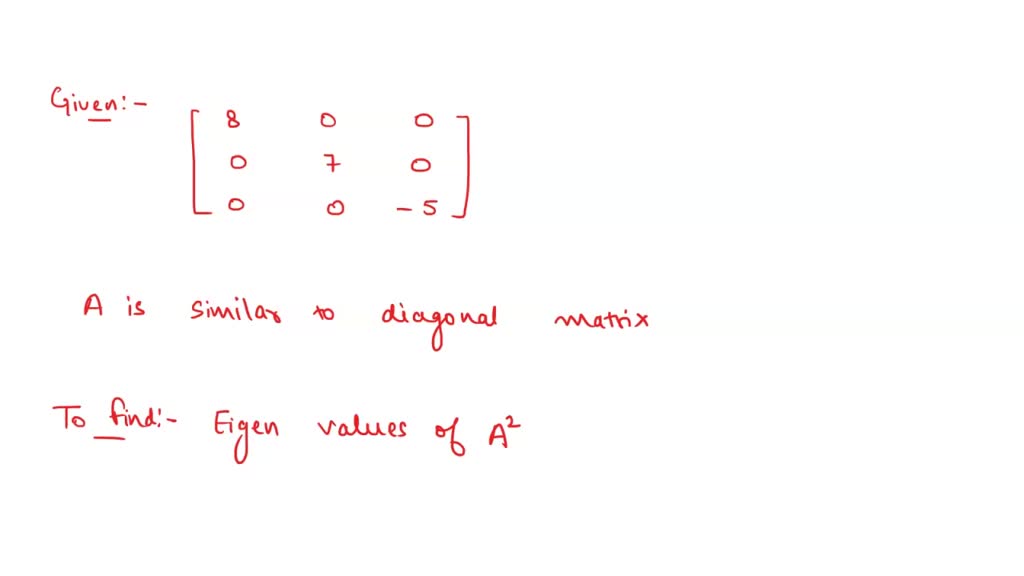 Given:-
8 0 0
0 7 0
0 0 -5
A is similar to diagonal matrix
To find:- Eigen values of A²